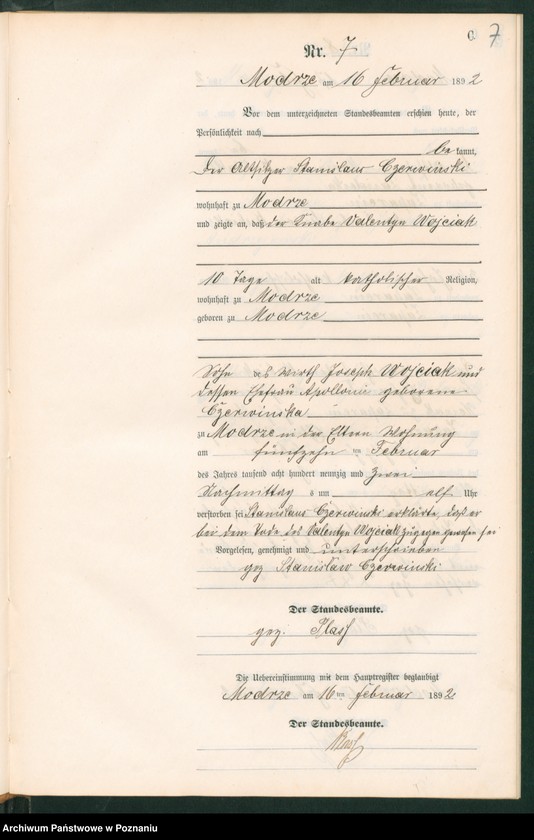 7
Nr. 7
Modrze am 16 Februar 1892
Vor dem unterzeichneten Standesbeamten erschien heute, der
Persönlichkeit nach
be kannt,
der Altsitzer Stanislaus Czerwinski
wohnhaft zu Modrze
und zeigte an, daß der Knabe Valentyn Wojciak
10 Tage alt katholischer Religion,
wohnhaft zu Modrze
geboren zu Modrze
Sohn des Wirth Joseph Wojciak und
dessen Ehefrau Apollonia geborene
Czerwinska
zu Modrze in der Eltern Wohnung
am fünfzehn ten Februar
des Jahres tausend acht hundert neunzig und zwei
Nachmittag s um elf Uhr
verstorben sei Stanislaus Czerwinski erklärte, daß er
bei dem Tode des Valentyn Wojciak zugegen gewesen sei
Vorgelesen, genehmigt und unterschrieben
gez Stanislaw Czerwinski
Der Standesbeamte.
gez.
Die Uebereinstimmung mit dem Hauptregister beglaubigt
Modrze am 16ten Februar 1892
Der Standesbeamte.
Archiwum Państwowe w Poznaniu